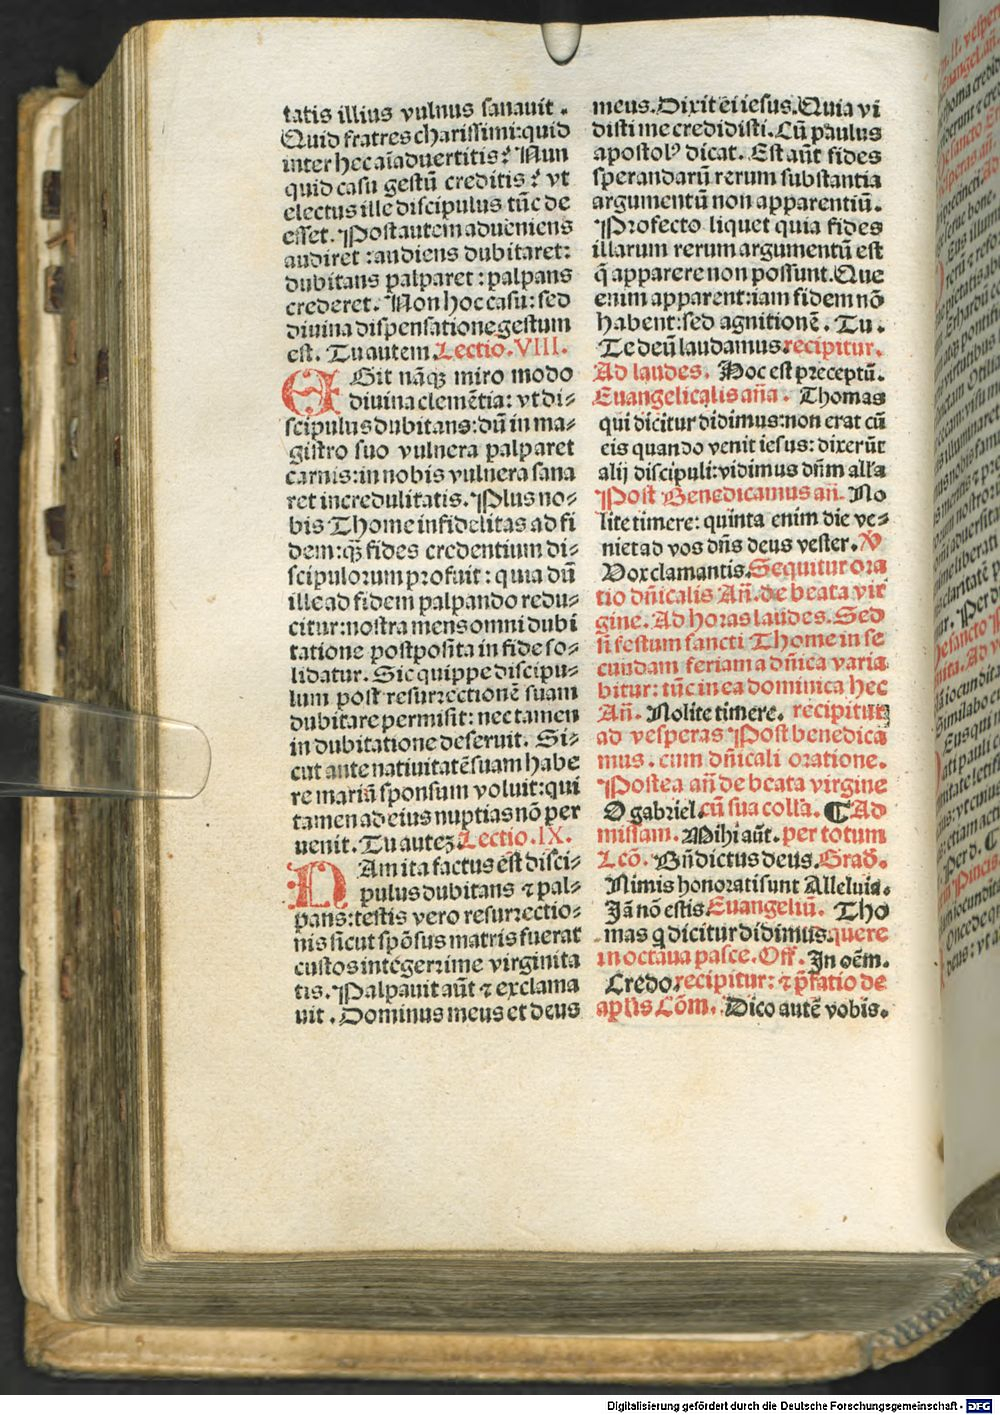 tatis illius vulnus sanauit.
Quid fratres charissimi:quid
inter hec aīaduertitis? Nun
quid casu gestū creditis? vt
electus ille discipulus tūc de
esset. Post autem adueniens
audiret:audiens dubitaret:
dubitans palparet:palpans
crederet. Non hoc casu:sed
diuina dispensatione gestum
est. Tu autem. Lectio.VIII.
EGit nāqꝫ miro modo
diuina clemētia: vt di-
scipulus dubitans:dū in ma-
gistro suo vulnera palparet
carnis:in nobis vulnera sana
ret incredulitatis. Plus no-
bis Thome infidelitas ad fi
dem:qꝫ fides credentium di-
scipulorum profuit: quia dū
ille ad fidem palpando redu-
citur:nostra mens omni dubi
tatione postposita in fide so-
lidatur. Sic quippe discipu-
lum post resurrectionē suam
dubitare permisit: nec tamen
in dubitatione deseruit. Si-
cut ante natiuitatē suam habe
re mariā sponsum voluit:qui
tamen ad eius nuptias nō per
uenit. Tu autez. Lectio.IX.
NAm ita factus est disci-
pulus dubitans ⁊ pal-
pans:testis vero resurrectio-
nis sicut spōsus matris fuerat
custos integerrime virginita
tis. Palpauit aūt ⁊ exclama
uit. Dominus meus et deus
meus. Dixit ei iesus. Quia vi
disti me credidisti. Cū paulus
apostolꝰ dicat. Est aūt fides
sperandarū rerum substantia
argumentū non apparentiū.
Profecto liquet quia fides
illarum rerum argumentū est
q̄ apparere non possunt. Que
enim apparent:iam fidem nō
habent:sed agnitionē. Tu.
Te deū laudamus. recipitur.
Ad laudes. Hoc est preceptū.
Euangelicalis aīia. Thomas
qui dicitur didimus:non erat cū
eis quando venit iesus: dixerūt
alij discipuli:vidimus dn̄m all'a
Post Benedicamus an̄. No
lite timere: quinta enim die ve-
niet ad vos dn̄s deus vester. V̄
Vox clamantis. Sequitur ora
tio dn̄icalis An̄. de beata vir
gine. Ad horas laudes. Sed
si festum sancti Thome in se
cundam feriam a dn̄ica varia
bitur: tūc in ea dominica hec
An̄. Nolite timere. recipitur
ad vesperas Post benedica
mus. cum dn̄icali oratione.
Postea an̄ de beata virgine
O gabriel. cū sua coll'a. ¶ Ad
missam. Mihi aūt. per totum
Lcō. Bn̄dictus deus. Grad̄.
Nimis honorati sunt Alleluia.
Jā nō estis. Euangeliū. Tho
mas q dicitur didimus. quere
in octaua pasce. Off. In oēm.
Credo. recipitur: ⁊ p̄fatio de
apl'is Cōm. Dico autē vobis.
Digitalisierung gefördert durch die Deutsche Forschungsgemeinschaft - DFG